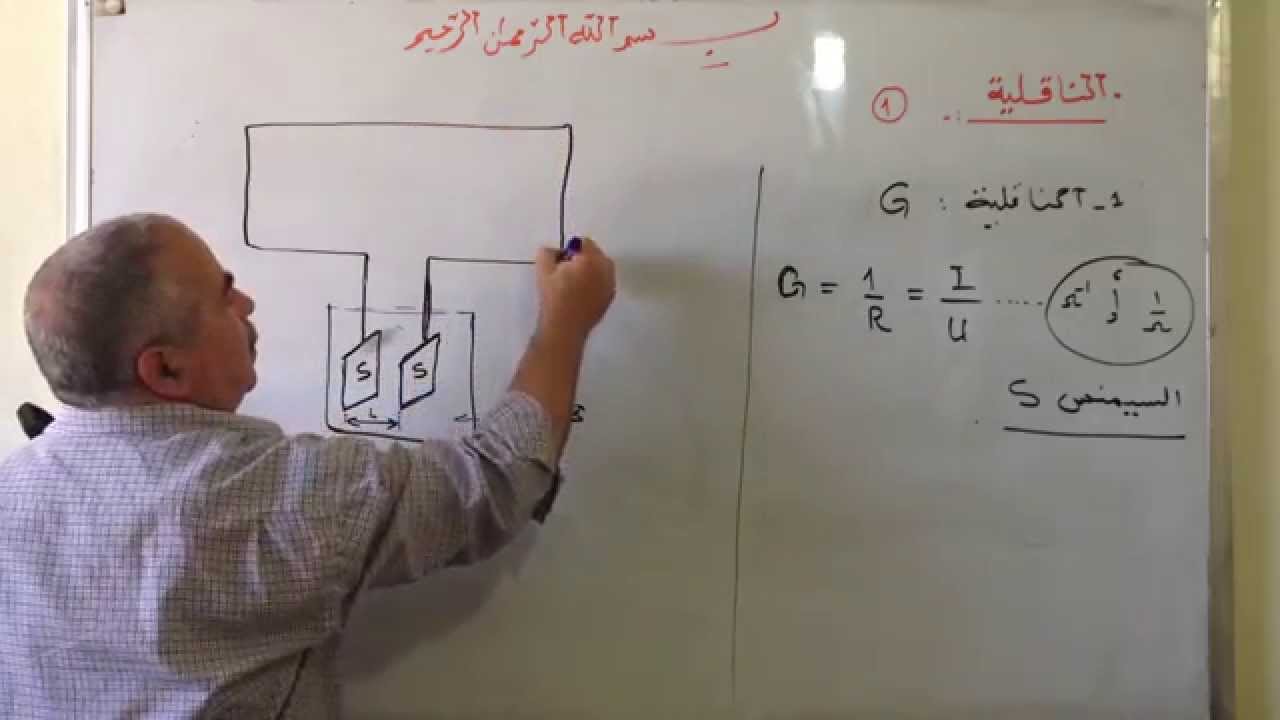 بسم الله الرحمن الرحيم
الناقلية . ①
1 - الناقلية : G
G = 1/R = I/U ..... Ω⁻¹ أو 1/Ω
السيمنس S
S S
L